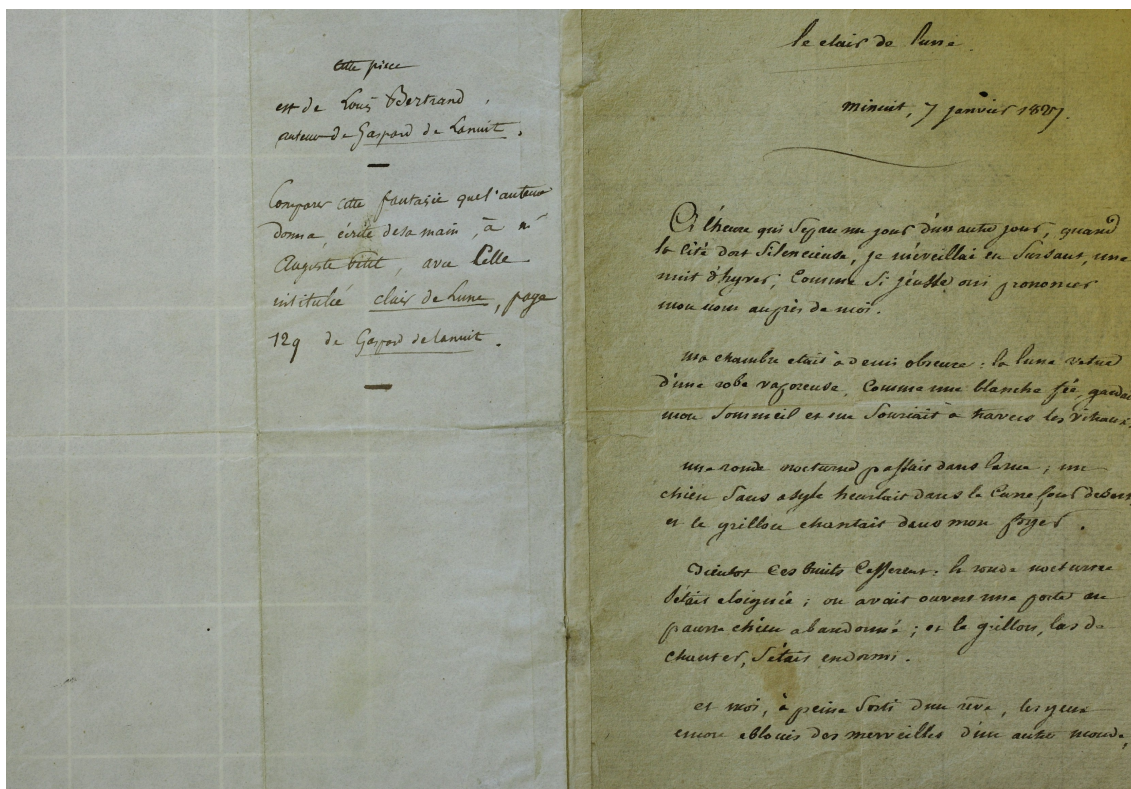 cette piece
est de Louis Bertrand,
auteur de Gaspard de Lanuit.
Comparer cette fantaisie que l'auteur
donna, écrite de sa main, à mr
Auguste Petit, avec Celle
intitulée clair de Lune, page
129 de Gaspard de Lanuit.
le clair de lune.
minuit, 7 janvier 1827.
a l'heure qui separe un jour d'un autre jour, quand
la cité dort silencieuse, je m'éveillai en sursaut, une
nuit d'hyver, comme si j'eusse oui prononcer
mon nom auprès de moi.
ma chambre etait à demi obscure : la lune vetue
d'une robe vaporeuse, comme une blanche fée, gardai
mon sommeil et me souriait à travers les vitraux.
une ronde nocturne passait dans la rue ; un
chien sans asyle heurlait dans le carrefour desert
et le grillon chantait dans mon foyer.
bientot ces bruits cesserent : la ronde nocturne
s'etait eloignée ; on avait ouvert une porte au
pauvre chien abandonné ; et le grillon, las de
chanter, s'était endormi.
et moi, à peine sorti d'un rêve, les yeux
encore eblouis des merveilles d'un autre monde,